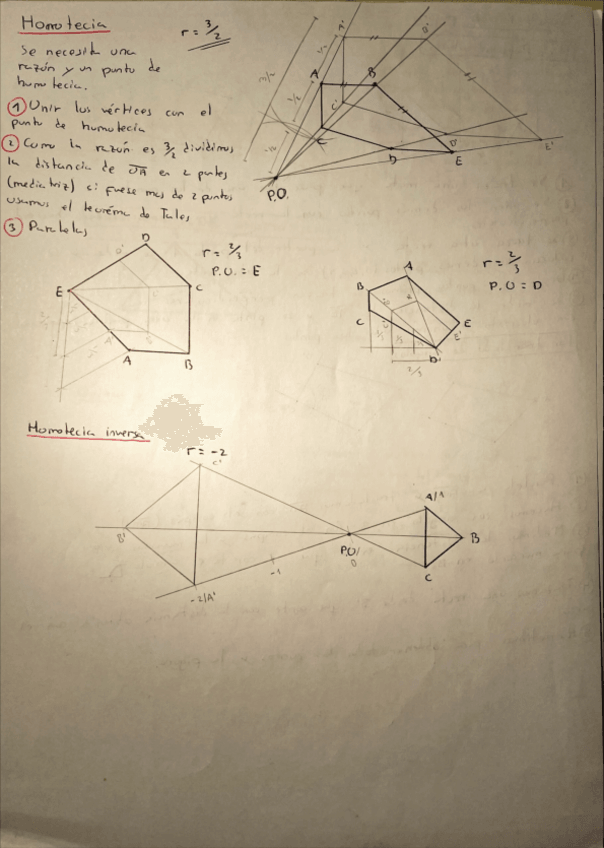 Homotecia
r = 3/2
Se necesita una
razón y un punto de
homotecia.
1 Unir los vértices con el
punto de homotecia
2 Como la razón es 3/2 dividimos
la distancia de OA en 2 partes
(mediatriz) si fuese mas de 2 puntos
usamos el teorema de Tales
3 Paralelas
A'
B'
A
B
C'
C
D'
D
E
E'
P.O.
3/2
1/2
1/2
1/2
D
r = 2/3
P.O. = E
E
C
A
B
D'
r = 2/3
P.O = D
A
B
C
E
E'
D
1/3
1/3
2/3
Homotecia inversa
r = -2
C'
B'
-2/A'
-1
P.O/
0
A/1
B
C